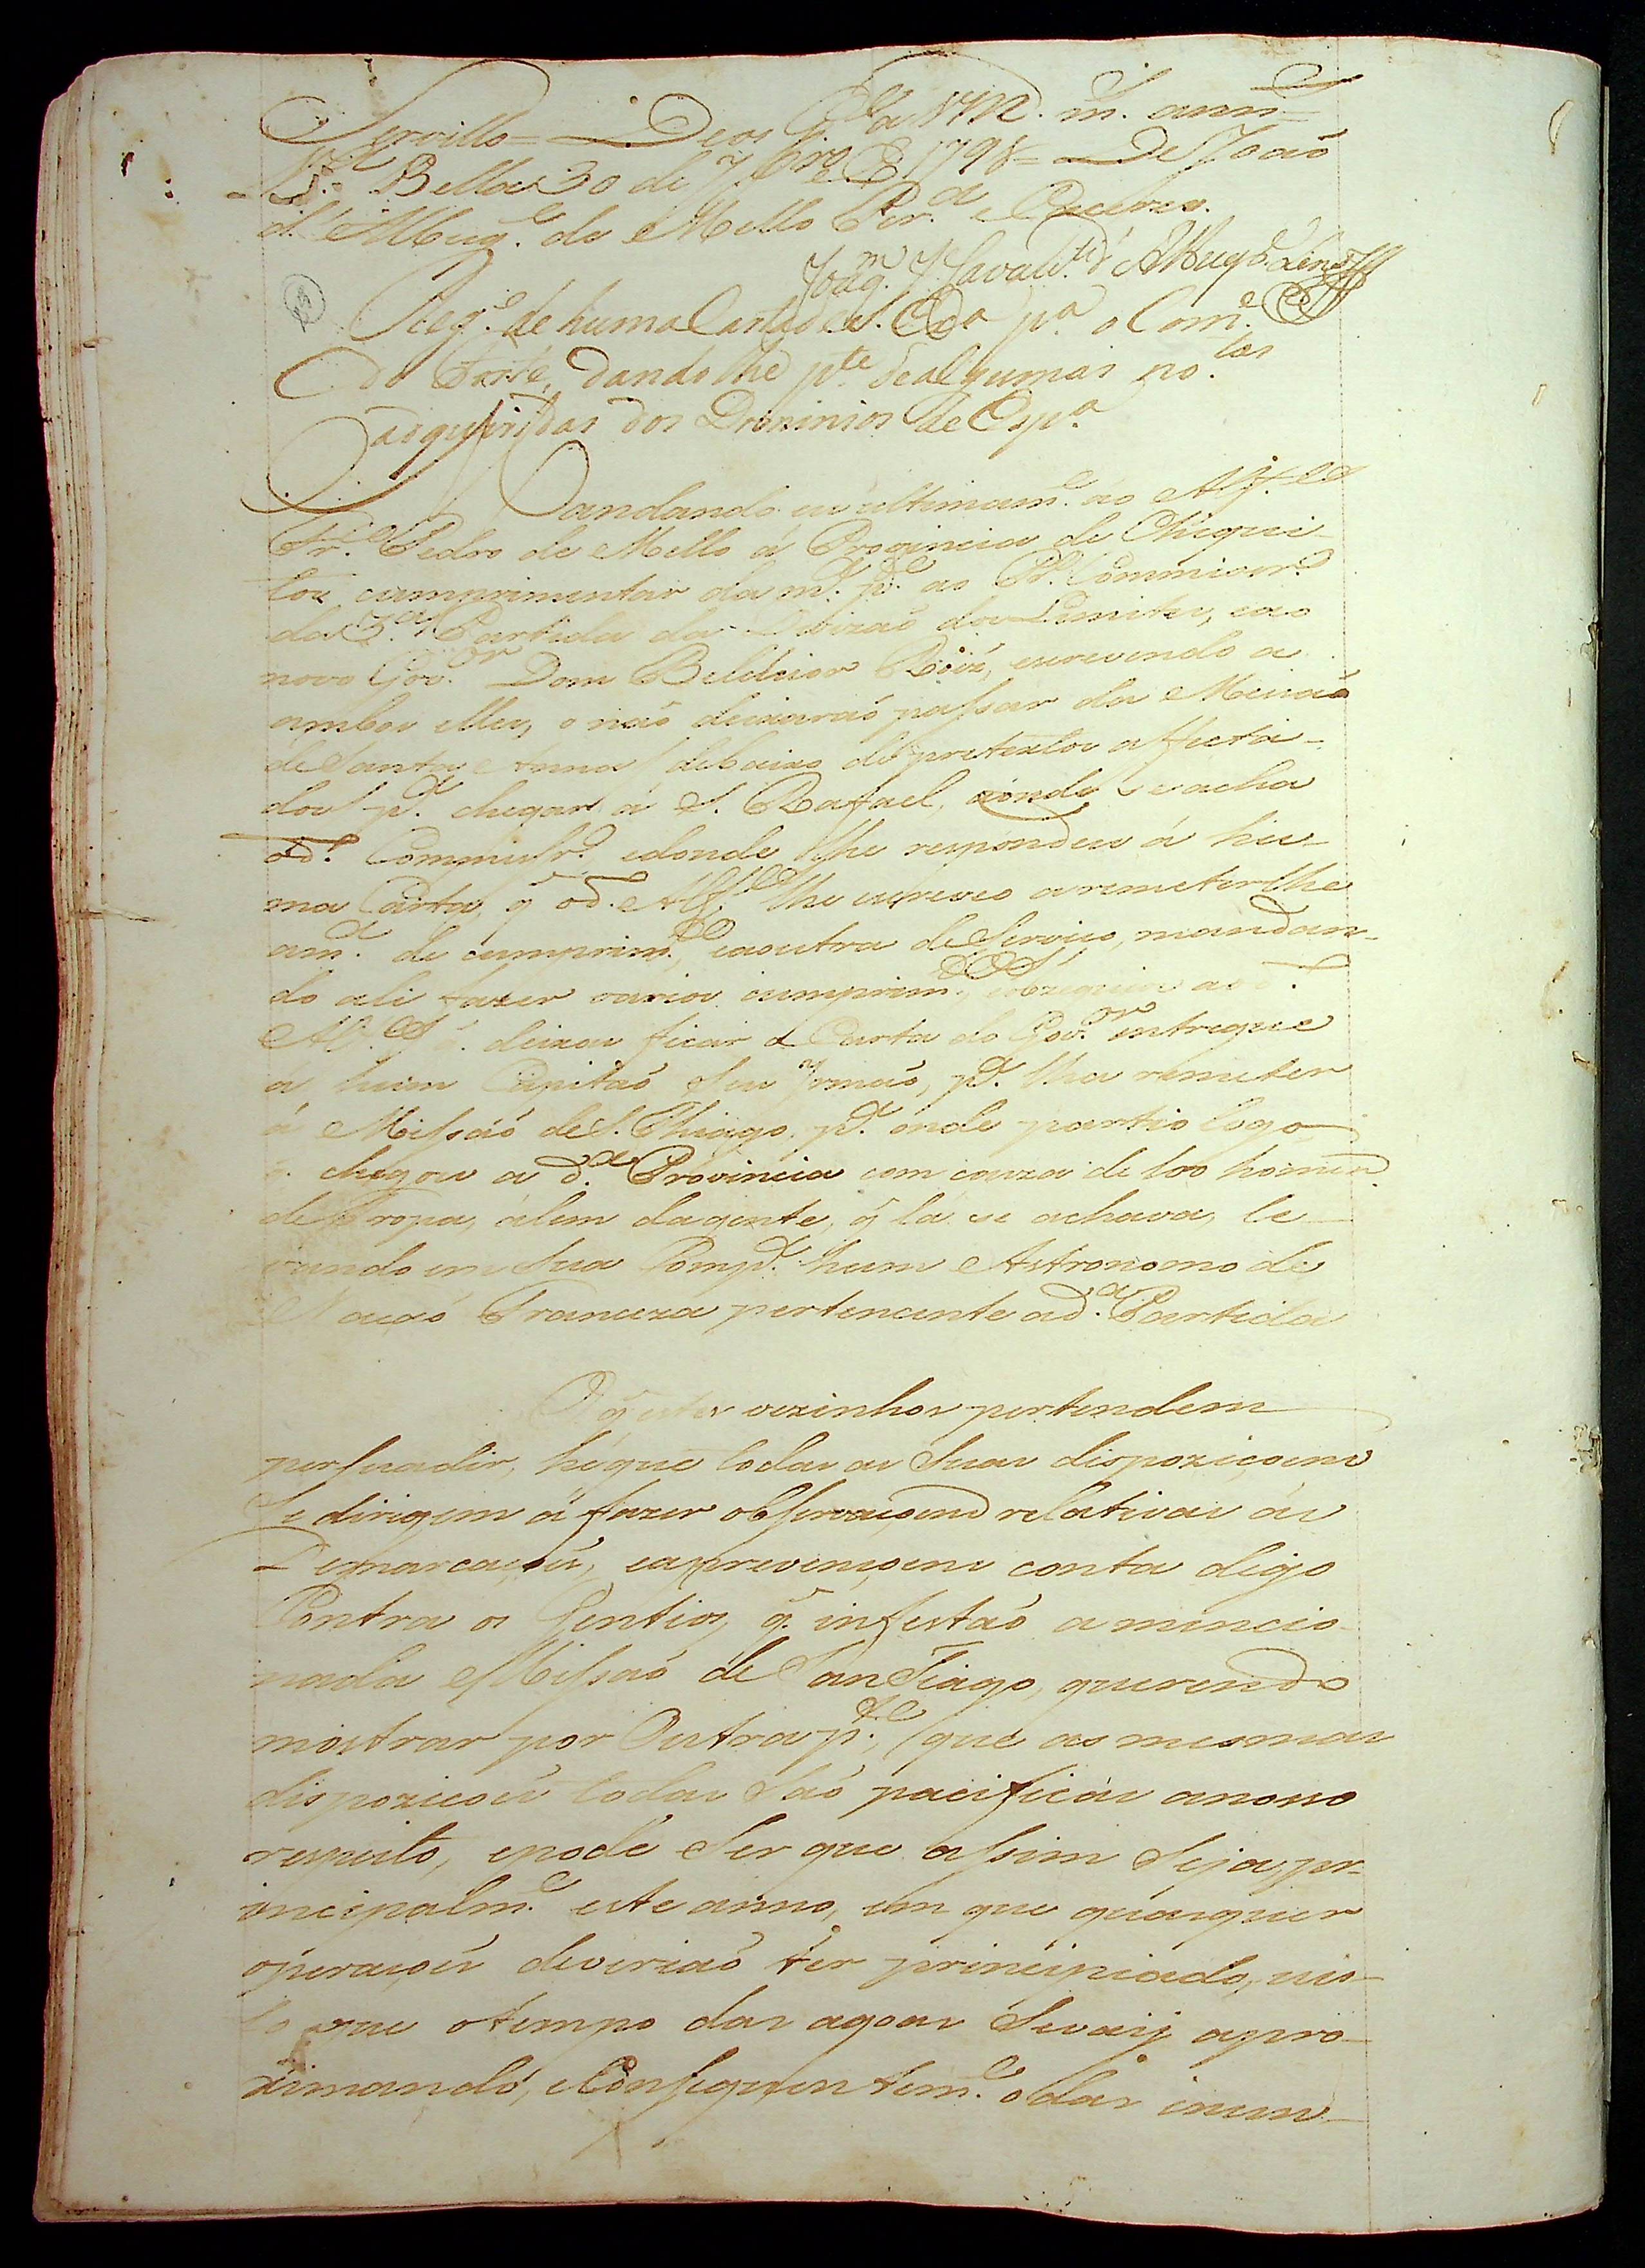 Servillo = Deos G.de a V M. m. ann.s =
V.a Bella 30 de 7bro de 1798 = De João
d'Albuq.e de Mello Per.a e Caceres.
Joaq.m J. Cavalc.ti d'Albuq.e Lins
Reg.o de huma Carta de S. Ex.a p.a o Com.e
do Forte, dandolhe p.te de algumas no.tas
adqueridas dos Dominios de Esp.a
Mandando eu ultimam.e ao Alf.es
Fr.co Pedro de Mello á Provincia de Chiqui-
tos cumprimentar da m.a p.te ao Commissr.o
da 3.a Partida da Divizaõ dos Limites, e ao
novo Gov.or Dom Belchior Roiz, escrevendo a
ambos elles, o naõ deixaraõ passar da Missaõ
de Santa Anna debaixo de pretextos affecta-
dos p.a chegar á S. Rafael, aonde se acha
o d.o Commissr.o, e donde lhe respondeu á hu-
ma Carta, q̃ o d.o Alf.es lhe escreveo a remeterlhe
a m.a de cumprim.to, e a outra de Serviço, mandan-
do ali fazer varios cumprim.tos, e obzequios ao d.o
Alf.es deixou ficar a Carta do Gov.or entregue
á hum Capitaõ seu Irmaõ, p.a lha remeter
á Missaõ de S. Thiago p.a onde partio logo
q̃. chegou a d.a Provincia com couza de 100 homens
de Tropa, álem da gente, q̃ lá se achava, le-
vando em sua Comp.a hum Astronomo de
Naçaõ Franceza pertencente a d.a Partida
O q̃ estes vezinhos pertendem
persuadir, hé que todas as suas dispoziçoens
se dirigem á fazer observaçoens relativas ás
Demarcaçoẽs, e a prevençoens conta digo
Contra os Gentios, q̃. infestaõ a mencio-
nada Missaõ de San Tiago, querendo
mostrar por Outra p.te, que as mesmas
dispoziçoẽs todas saõ pacificas a nosso
respeito, e pode ser que assim seja, pr-
incipalm.e este anno, em que quaesquer
operaçoẽs deveriaõ ter principiado, vis-
to que o tempo das agoas se vaij apro-
ximando, e Conseguentem.e o das inun-